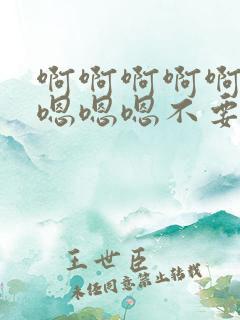 啊啊啊啊啊
嗯嗯嗯不要
王世臣
未经同意禁止转载